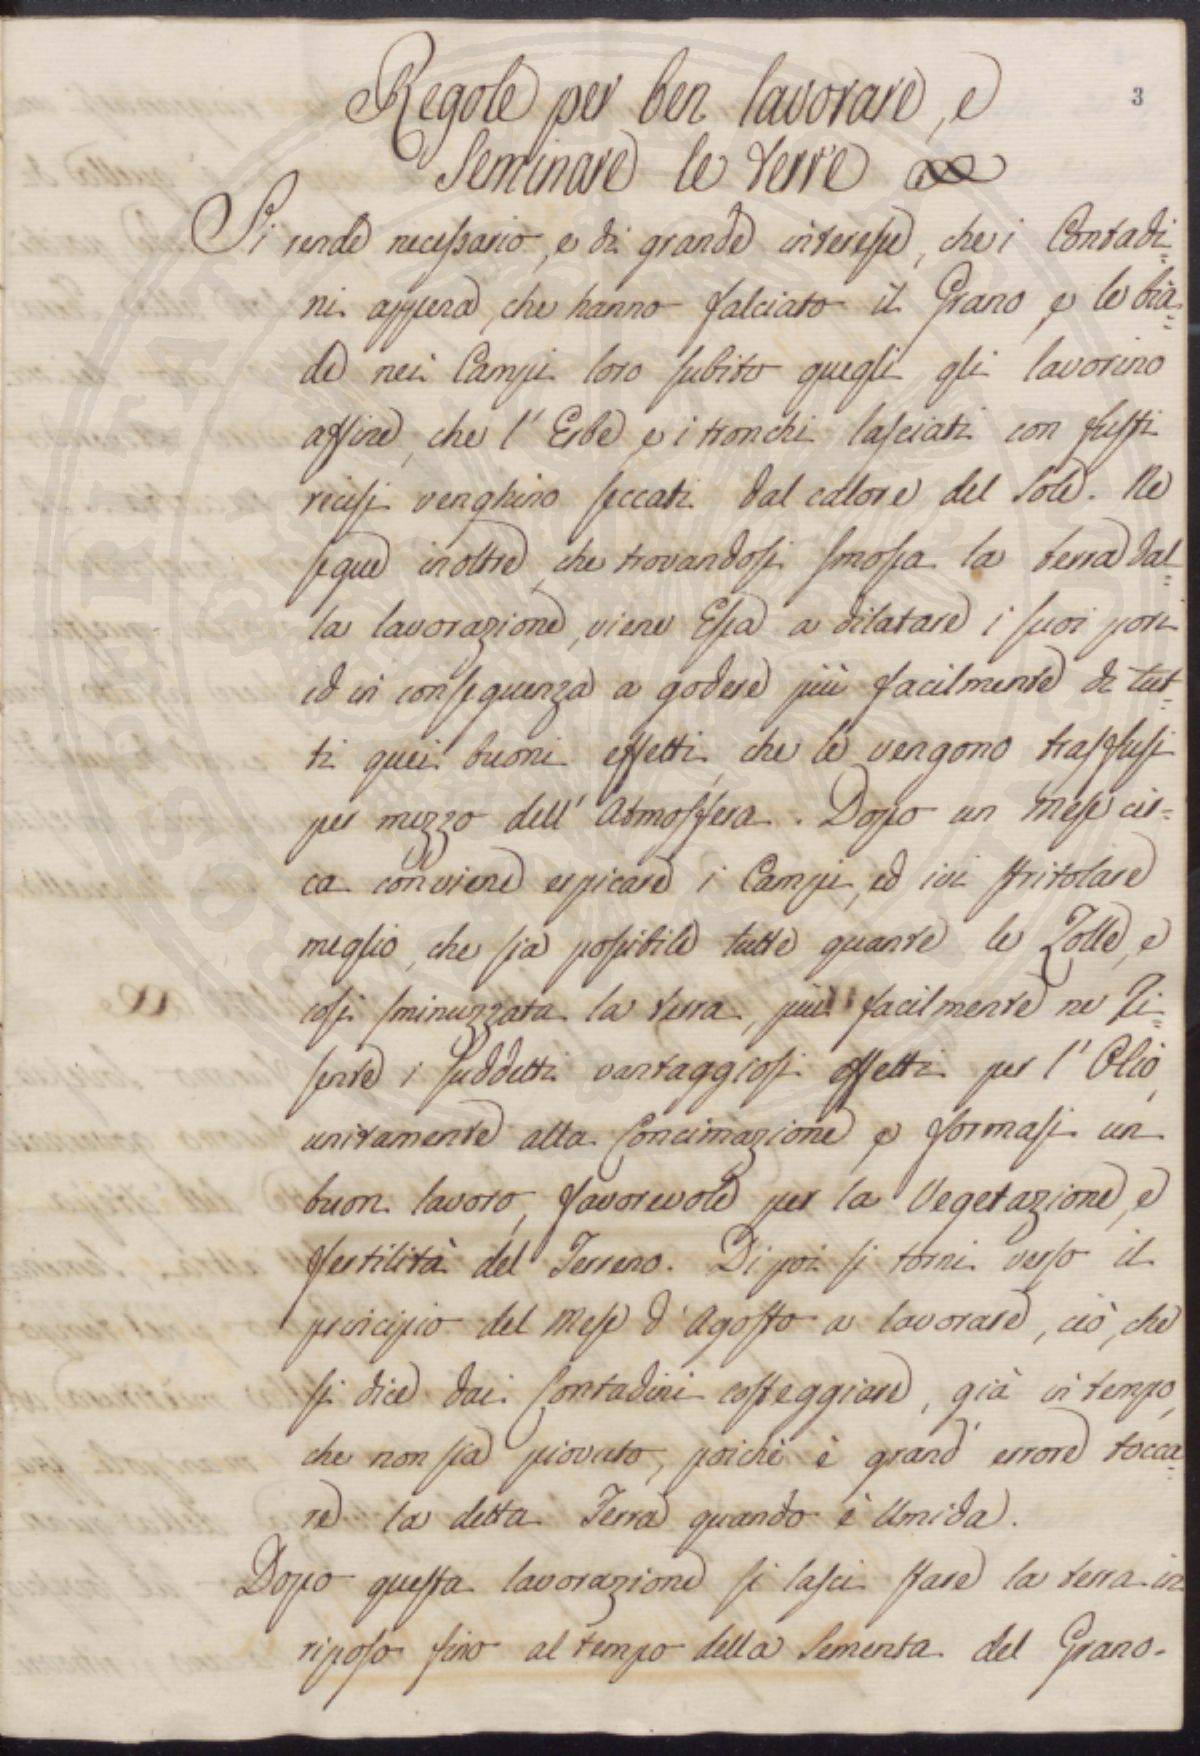 3
Regole per ben lavorare, e
Seminare le terre
Si rende necessario, e di grande interesse, che i Contadi=
ni appena, che hanno falciato il Grano, e le bia=
de nei Campi loro subito quegli gli lavorino
affine, che l'Erbe, e i tronchi lasciati con frutti
recisi venghino seccati dal calore del Sole. Ne
segue inoltre, che trovandosi smossa la terra dal=
la lavorazione, viene Essa a dilatare i suoi pori
ed in conseguenza a godere più facilmente di tut=
ti quei buoni effetti, che le vengono trasfusi
per mezzo dell'Atmosfera. Dopo un Mese cir=
ca conviene erpicare i Campi, ed ivi stritolare
meglio, che sia possibile tutte quante le Zolle, e
così sminuzzata la terra, più facilmente ne Ri=
sente i suddetti vantaggiosi effetti per l'Olio,
unitamente alla Concimazione, e formasi un
buon lavoro, favorevole per la Vegetazione, e
fertilità del Terreno. Di poi si torni verso il
principio del Mese d'Agosto a lavorare, ciò, che
si dice dai Contadini costeggiare, già in tempo,
che non sia piovuto, poichè è grand'errore tocca=
re la detta Terra quando è Umida.
Dopo questa lavorazione si lasci stare la terra in
riposo fino al tempo della Sementa del Grano.